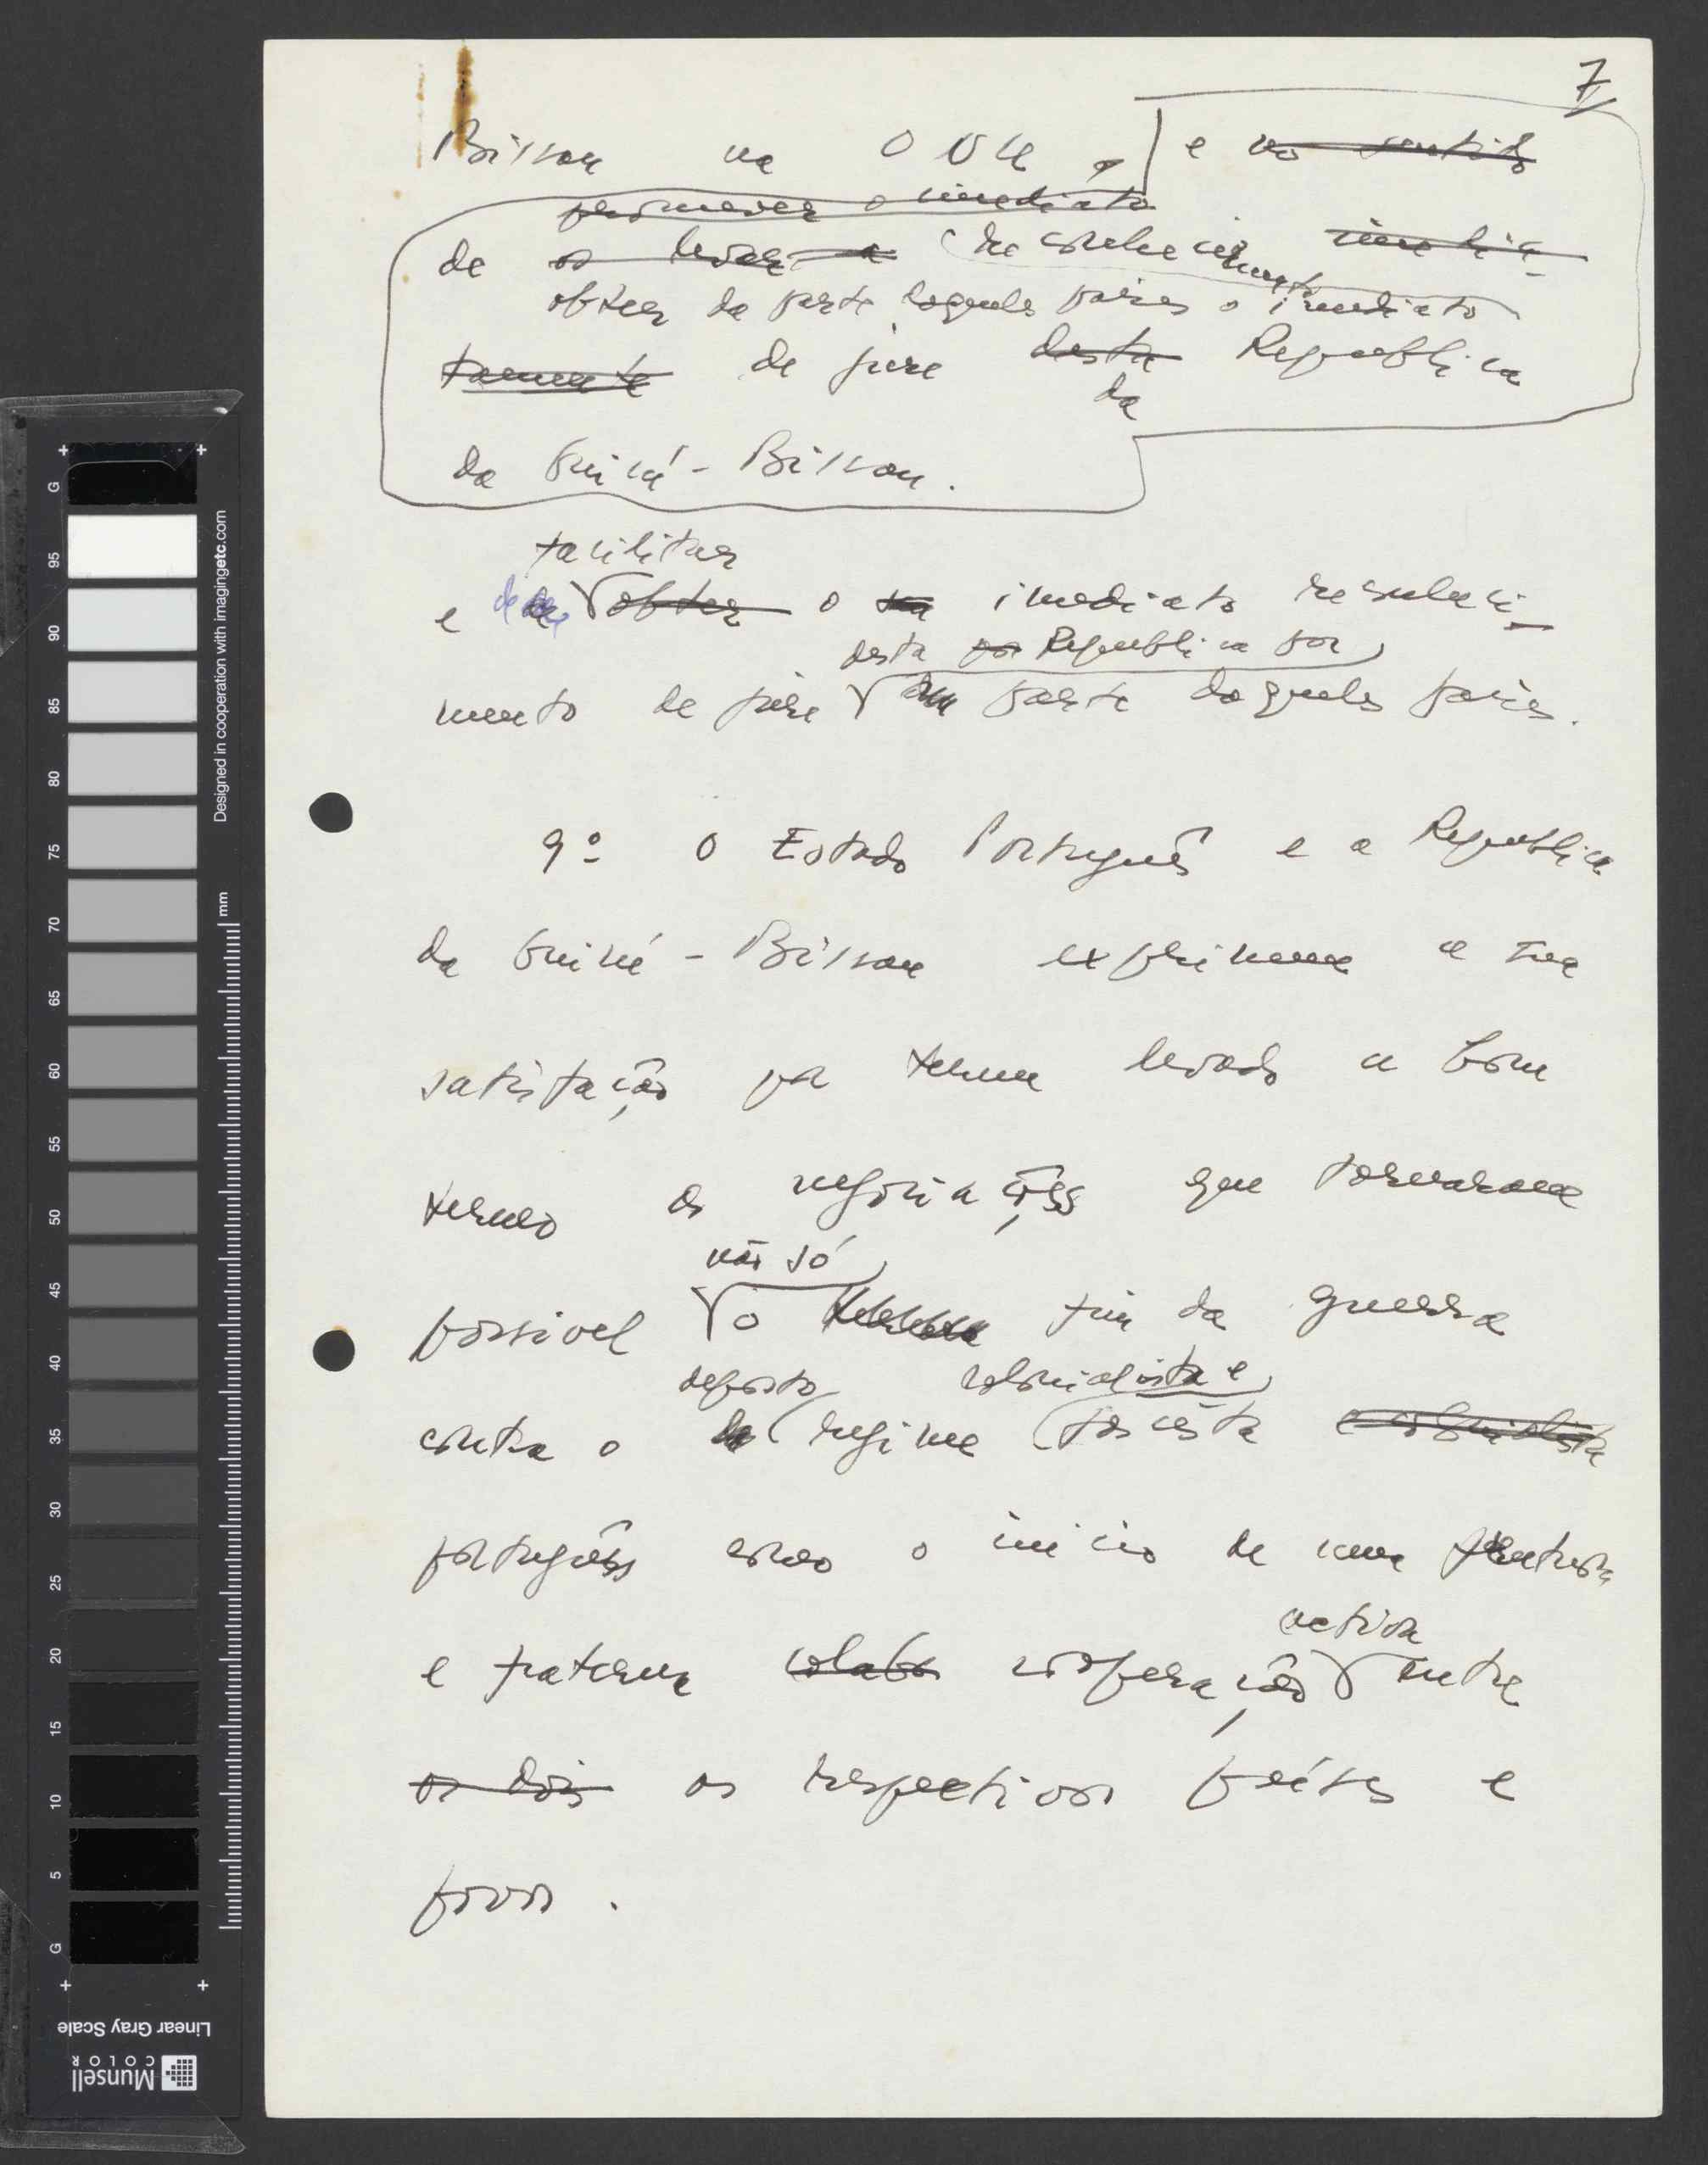 7
Bissau na ONU, e no sentido
promover o imediato
de os levar a reconhecimento imedia-
obter da parte daqueles países o imediato
tamente de jure desta República
da
da Guiné-Bissau.
facilitar
e de obter o imediato reconheci-
desta República por
mento de jure parte daqueles países.
9º O Estado Português e a República
da Guiné-Bissau exprimem a sua
satisfação por terem levado a bom
termo as negociações que tornaram
não só
possível o fim da guerra
deposto colonialista e
contra o regime fascista e colonialista
português como o início de uma
e fraterna colabo cooperação entre
activa
os dois os respectivos países e
povos.
G 95 90 85 80 75 70 65 60 55 50 45 40 35 30 25 20 15 10 5 G
mm
Designed in cooperation with imagingetc.com
Linear Gray Scale
Munsell
COLOR